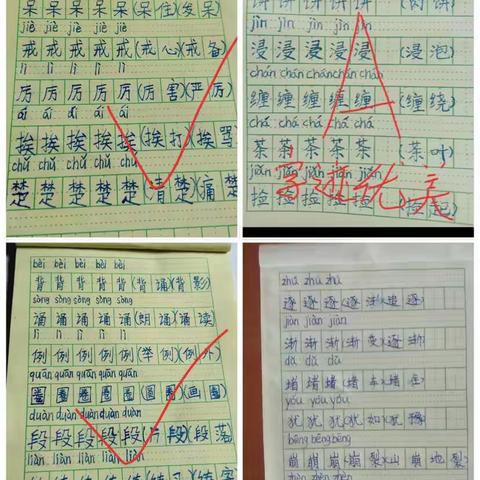 呆 呆 呆 呆 呆 (呆住)(发呆)
jiè jiè jiè jiè jiè
戒 戒 戒 戒 戒 (戒心)(戒备)
lì lì lì lì lì
厉 厉 厉 厉 厉 (厉害)(严厉)
ái ái ái ái ái
挨 挨 挨 挨 挨 (挨打)(挨骂)
chǔ chǔ chǔ chǔ chǔ
楚 楚 楚 楚 楚 (清楚)(痛楚)
饼 饼 饼 饼 饼 (肉饼)
jìn jìn jìn jìn jìn
浸 浸 浸 浸 浸 (浸泡)
chán chán chán chán chán
缠 缠 缠 缠 缠 (缠绕)
chá chá chá chá chá
茶 茶 茶 茶 茶 (茶叶)
jiǎn jiǎn jiǎn jiǎn jiǎn
捡 捡 捡 捡 捡 (捡起)
A
字迹优美
bèi bèi bèi bèi bèi
背 背 背 背 背 (背诵)(背影)
sòng sòng sòng sòng sòng
诵 诵 诵 诵 诵 (朗诵)(诵读)
lì lì lì lì lì
例 例 例 例 例 (举例)(例外)
quān quān quān quān quān
圈 圈 圈 圈 圈 (圆圈)(画圈)
duàn duàn duàn duàn duàn
段 段 段 段 段 (片段)(段落)
liàn liàn liàn liàn liàn
zhú zhú zhú
逐 逐 逐 (逐渐)(追逐)
jiàn jiàn jiàn
渐 渐 渐 (渐变)(逐渐)
dǔ dǔ dǔ
堵 堵 堵 (堵车)(堵住)
yóu yóu yóu
犹 犹 犹 (犹如)(犹豫)
bēng bēng bēng
崩 崩 崩 (崩裂)(山崩地裂)